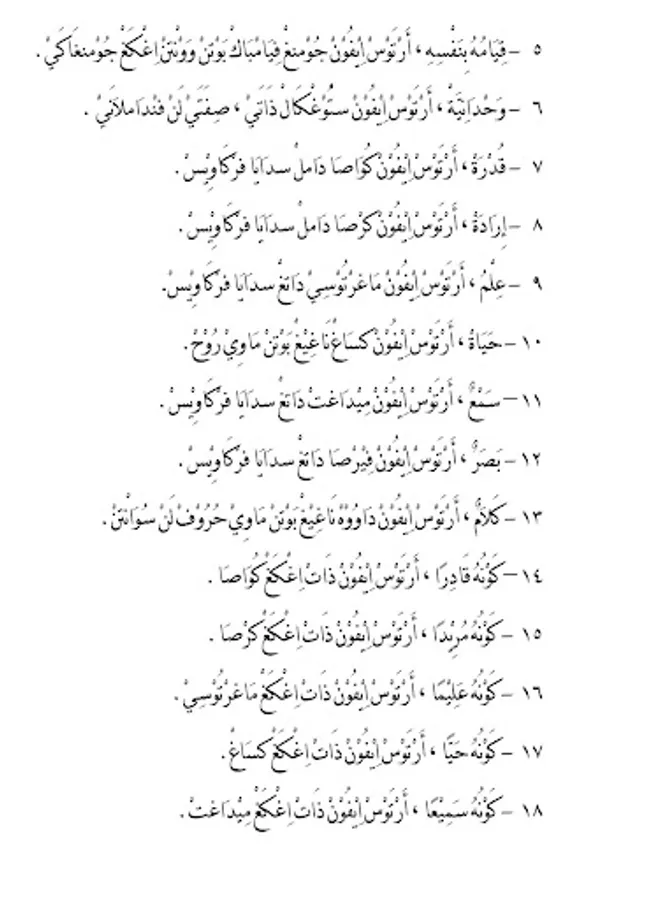 ٥ – قِيَامُهُ بِنَفْسِهِ ، أَرْتَوْسْ اِيْفُوْنْ جُوْمنڠْ قِيَامْبَاكْ بَوْتَنْ وَوْنْتَنْ اِڠْكَڠْ جُوْمنڠَاكَيْ.
٦ – وَحْدَانِيَّةْ ، أَرْتَوْسْ اِيْفُوْنْ ستُوْڠْكَالْ ذَاتَيْ ، صِفَتَيْ لَنْ فَنْدَامَلَانَيْ .
٧ – قُدْرَةْ ، أَرْتَوْسْ اِيْفُوْنْ كُوَاصَا دَامل سدَايَا فرْكَاوِيْسْ.
٨ – إِرَادَةْ ، أَرْتَوْسْ اِيْفُوْنْ كَرْصَا دَامل سدَايَا فرْكَاوِيْسْ.
٩ – عِلْمُ ، أَرْتَوْسْ اِيْفُوْنْ مَاڠرْتُوْسِيْ دَاتڠْ سدَايَا فرْكَاوِيْسْ.
١٠ – حَيَاةْ ، أَرْتَوْسْ اِيْفُوْنْ كسَاڠْ نَاڠِيْڠْ بَوْتَنْ مَاوِيْ رُوْحْ.
١١ – سَمْعٌ ، أَرْتَوْسْ اِيْفُوْنْ مِيْدَاڠتْ دَاتڠْ سدَايَا فرْكَاوِيْسْ.
١٢ – بَصَرٌ ، أَرْتَوْسْ اِيْفُوْنْ فِيْرْصَا دَاتڠْ سدَايَا فرْكَاوِيْسْ.
١٣ – كَلاَمٌ ، أَرْتَوْسْ اِيْفُوْنْ دَاوُوْهْ نَاڠِيْڠْ بَوْتَنْ مَاوِيْ حُرُوْفْ لَنْ سُوَانْتَنْ.
١٤ – كَوْنُهُ قَادِرًا ، أَرْتَوْسْ اِيْفُوْنْ ذَاتْ اِڠْكَڠْ كُوَاصَا .
١٥ – كَوْنُهُ مُرِيْدًا ، أَرْتَوْسْ اِيْفُوْنْ ذَاتْ اِڠْكَڠْ كَرْصَا .
١٦ – كَوْنُهُ عَلِيْمًا ، أَرْتَوْسْ اِيْفُوْنْ ذَاتْ اِڠْكَڠْ مَاڠرْتُوْسِيْ .
١٧ – كَوْنُهُ حَيًّا ، أَرْتَوْسْ اِيْفُوْنْ ذَاتْ اِڠْكَڠْ كسَاڠْ.
١٨ – كَوْنُهُ سَمِيْعًا ، أَرْتَوْسْ اِيْفُوْنْ ذَاتْ اِڠْكَڠْ مِيْدَاڠتْ .